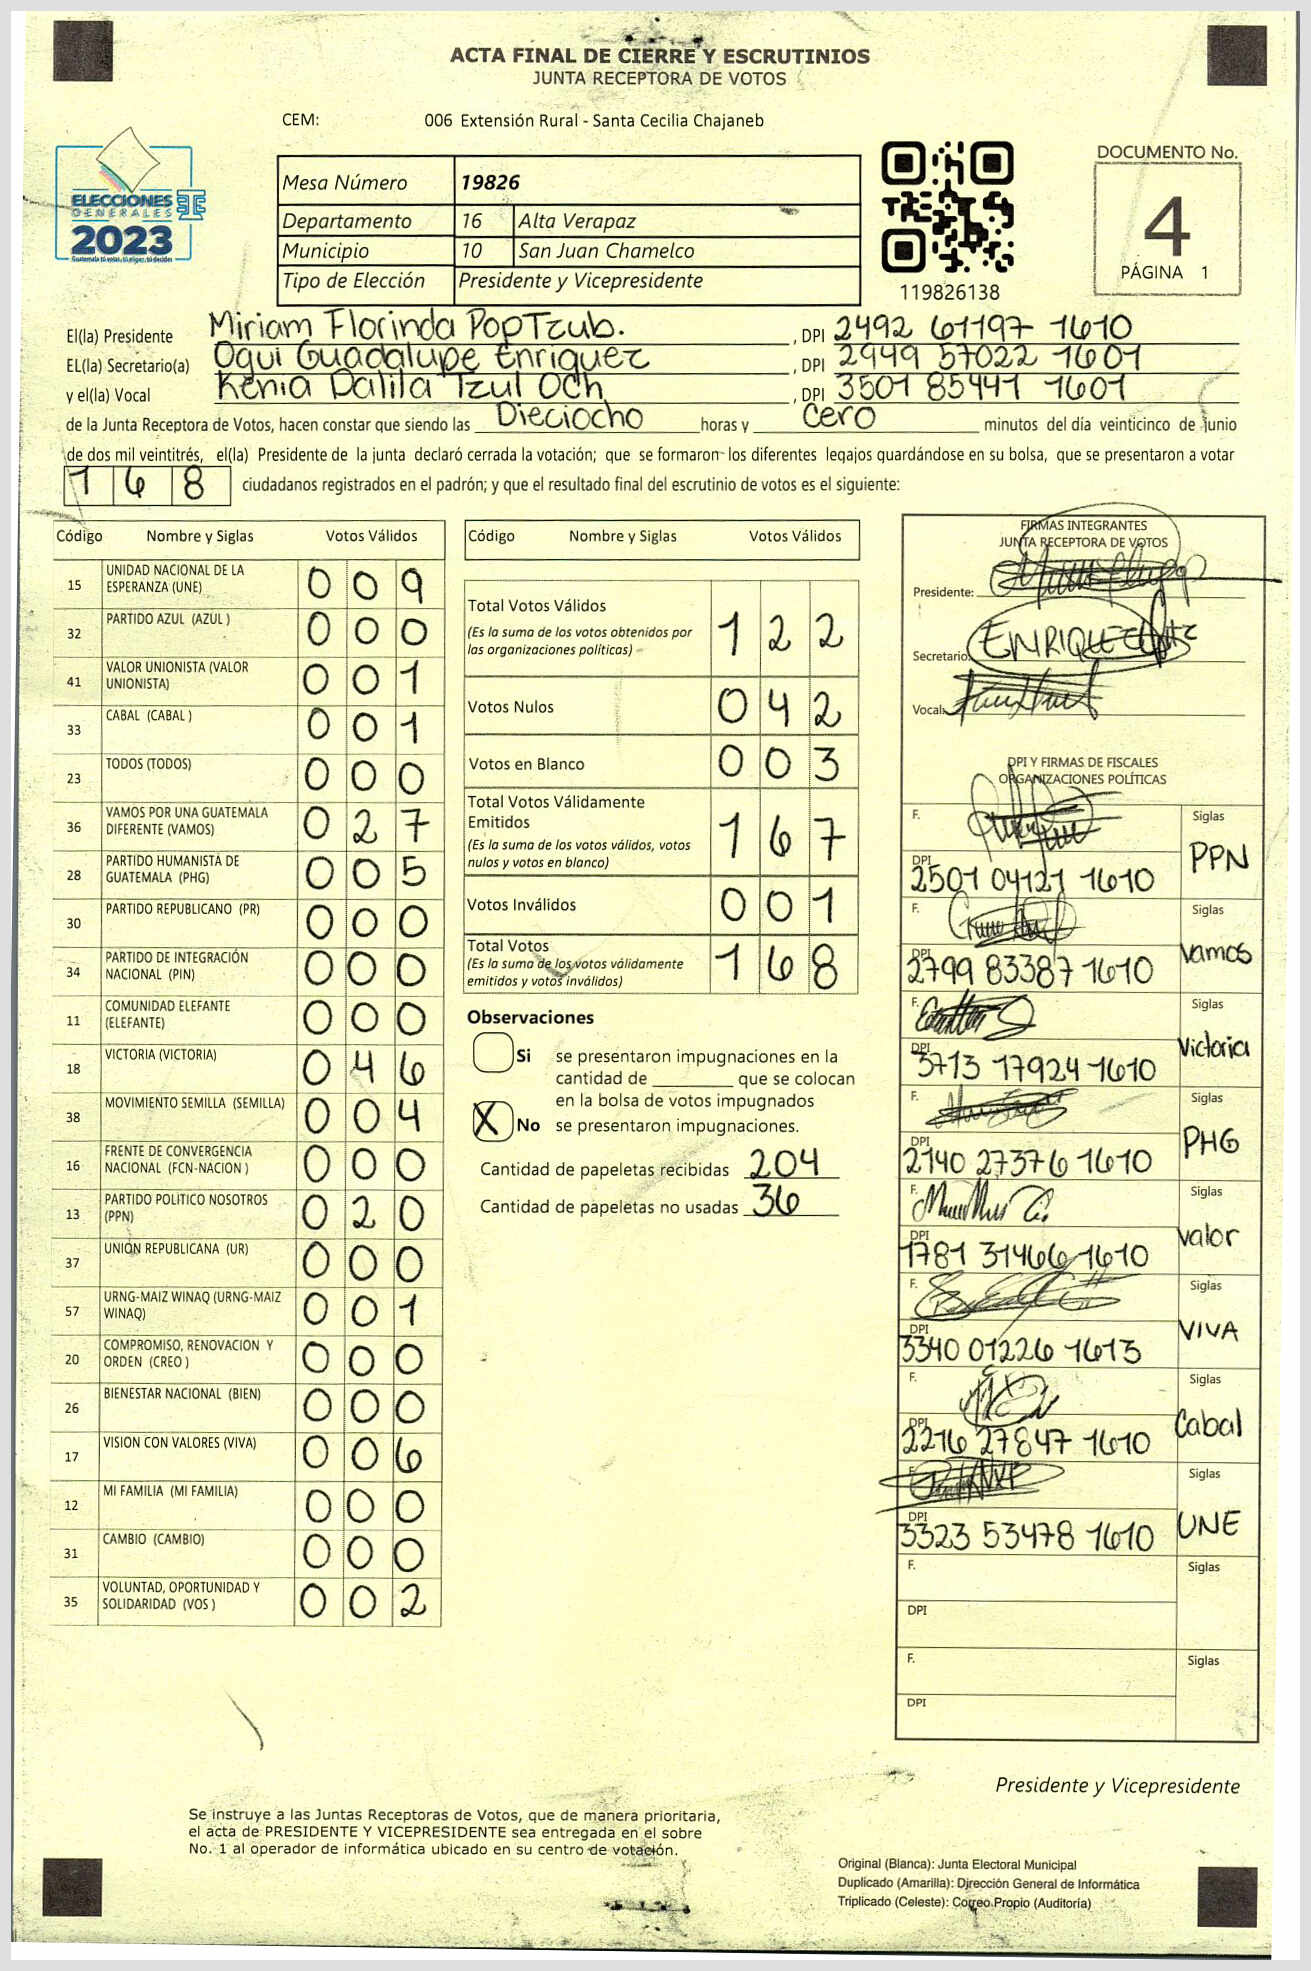 ACTA FINAL DE CIERRE Y ESCRUTINIOS
JUNTA RECEPTORA DE VOTOS
CEM: 006 Extensión Rural - Santa Cecilia Chajaneb
ELECCIONES
GENERALES
2023
Mesa Número 19826
Departamento 16 Alta Verapaz
Municipio 10 San Juan Chamelco
Tipo de Elección Presidente y Vicepresidente
119826138
DOCUMENTO No.
4
PÁGINA 1
El(la) Presidente Miriam Florinda Pop Tzub. , DPI 2492 61197 1610
EL(la) Secretario(a) Oqui Guadalupe Enriquez , DPI 2949 57022 1601
y el(la) Vocal Kenia Dalila Tzul Och , DPI 3501 85441 1601
de la Junta Receptora de Votos, hacen constar que siendo las Dieciocho horas y Cero minutos del día veinticinco de junio
de dos mil veintitrés, el(la) Presidente de la junta declaró cerrada la votación; que se formaron los diferentes legajos guardándose en su bolsa, que se presentaron a votar
168 ciudadanos registrados en el padrón; y que el resultado final del escrutinio de votos es el siguiente:
Código Nombre y Siglas Votos Válidos
15 UNIDAD NACIONAL DE LA ESPERANZA (UNE) 009
32 PARTIDO AZUL (AZUL ) 000
41 VALOR UNIONISTA (VALOR UNIONISTA) 001
33 CABAL (CABAL ) 001
23 TODOS (TODOS) 000
36 VAMOS POR UNA GUATEMALA DIFERENTE (VAMOS) 027
28 PARTIDO HUMANISTA DE GUATEMALA (PHG) 005
30 PARTIDO REPUBLICANO (PR) 000
34 PARTIDO DE INTEGRACIÓN NACIONAL (PIN) 000
11 COMUNIDAD ELEFANTE (ELEFANTE) 000
18 VICTORIA (VICTORIA) 046
38 MOVIMIENTO SEMILLA (SEMILLA) 004
16 FRENTE DE CONVERGENCIA NACIONAL (FCN-NACION ) 000
13 PARTIDO POLITICO NOSOTROS (PPN) 020
37 UNION REPUBLICANA (UR) 000
57 URNG-MAIZ WINAQ (URNG-MAIZ WINAQ) 001
20 COMPROMISO, RENOVACION Y ORDEN (CREO ) 000
26 BIENESTAR NACIONAL (BIEN) 000
17 VISION CON VALORES (VIVA) 006
12 MI FAMILIA (MI FAMILIA) 000
31 CAMBIO (CAMBIO) 000
35 VOLUNTAD, OPORTUNIDAD Y SOLIDARIDAD (VOS ) 002
Código Nombre y Siglas Votos Válidos
Total Votos Válidos 122
(Es la suma de los votos obtenidos por
las organizaciones políticas)
Votos Nulos 042
Votos en Blanco 003
Total Votos Válidamente
Emitidos 167
(Es la suma de los votos válidos, votos
nulos y votos en blanco)
Votos Inválidos 001
Total Votos 168
(Es la suma de los votos válidamente
emitidos y votos inválidos)
Observaciones
Si se presentaron impugnaciones en la
cantidad de ________ que se colocan
en la bolsa de votos impugnados
X No se presentaron impugnaciones.
Cantidad de papeletas recibidas 204
Cantidad de papeletas no usadas 36
FIRMAS INTEGRANTES
JUNTA RECEPTORA DE VOTOS
Presidente:
Secretario: ENRIQUEZ
Vocal:
DPI Y FIRMAS DE FISCALES
ORGANIZACIONES POLÍTICAS
F. Siglas
DPI 2501 04121 1610 PPN
F. Siglas
DPI 2799 83387 1610 Vamos
F. Siglas
DPI 3713 17924 1610 Victoria
F. Siglas
DPI 2140 27376 1610 PHG
F. Siglas
DPI 1781 31466 1610 Valor
F. Siglas
DPI 3340 01226 1613 VIVA
F. Siglas
DPI 2216 27847 1610 Cabal
F. Siglas
DPI 3323 53478 1610 UNE
F. Siglas
DPI
F. Siglas
DPI
Presidente y Vicepresidente
Se instruye a las Juntas Receptoras de Votos, que de manera prioritaria,
el acta de PRESIDENTE Y VICEPRESIDENTE sea entregada en el sobre
No. 1 al operador de informática ubicado en su centro de votación.
Original (Blanca): Junta Electoral Municipal
Duplicado (Amarilla): Dirección General de Informática
Triplicado (Celeste): Correo Propio (Auditoría)